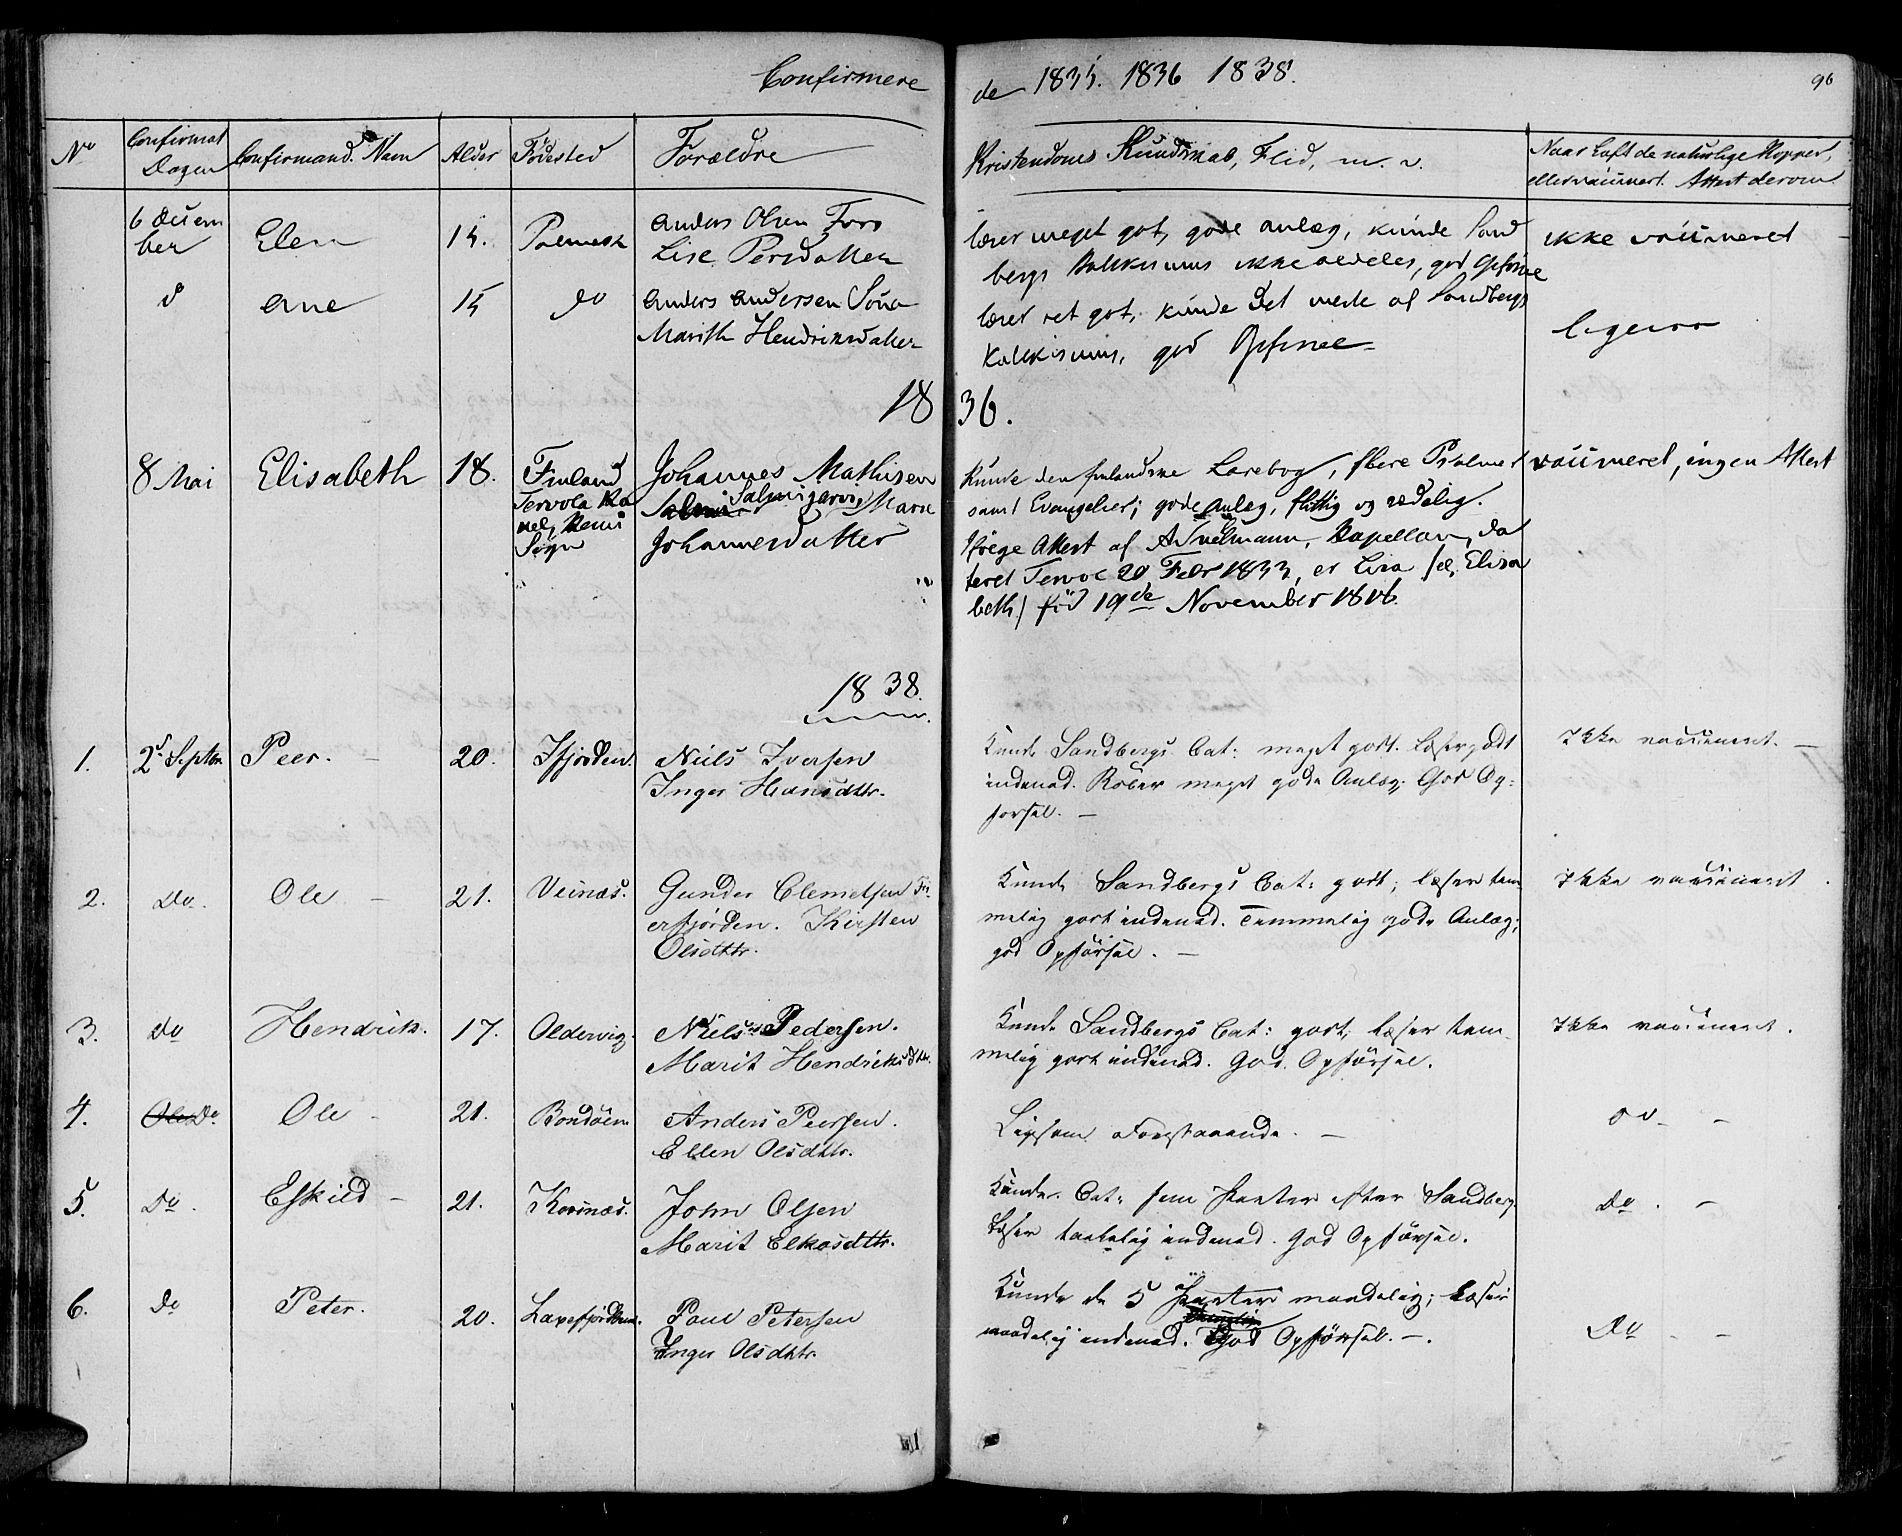 Confirmere
de 1835. 1836 1838.
96
No
Confirmat Dagen
Confirmand. Navn
Alder
Fødested
Forældre
Kristendoms Kundskab, Flid, m. v.
Naar haft de naturlige Kopper,
eller vaccineret. Attest derom
6 Decem
ber
Elen
15.
Polmesk
Anders Olsen Fors
Lise Persdatter
læser meget got, gode anlæg, kunde Sand
bergs Katekismus ikke aldeles, god Opførsel
ikke vaccineret
do
Ane
15
do
Anders Andersen
Marith Hendriksdatter
læser ret got, kunde Det meste af Sandbergs
Katekismus, god Opførsel
ligesaa
1836.
8 Mai
Elisabeth
18.
Finland
Tervola Ka
pel, Kemi
Sogn
Johannes Mathisen
Salmijervi, Maria
Johannesdatter
Kunde den finlandske Lærebog, flere Psalmer
samt Evangelier; gode Anlæg, flittig og sædelig.
Ifølge Attest af A Snelmann, Kapellan, da
teret Tervola 20 Febr 1833, er Lisa /ɔ: Elisa
beth/ fød 19de November 1818.
vaccineret, ingen Attest
1838.
1.
2d Septbr.
Peer. -
20.
Ifjorden.
Niels Iversen
Inger Hansdttr.
Kunde Sandbergs Cat: meget godt. Læser godt
indenad. Røber meget gode Anlæg; God Op-
førsel. -
Ikke vaccineret. -
2.
Do.
Ole -
21.
Veinæs.
Gunder Clemetsen
erfjorden. Kirsten
Olsdttr.
Kunde Sandbergs Cat: godt; læser tem
melig godt indenad. Temmelig gode Anlæg;
god Opførsel. -
Ikke vaccineret.
3.
Do
Hendrik.
17.
Oldervig.
Niels Pedersen.
Marit Hendriksdttr.
Kunde Sandbergs Cat: godt; læser tem-
melig godt indenad. God Opførsel.
Ikke vaccineret.
4.
Do.
Ole -
21.
Anders Peersen.
Ellen Olsdttr.
Ligesom Foregaaende. -
Do -
5.
Do.
Eskild -
21.
Korsnæs.
John Olsen
Marit Elkasdttr.
Kunde Cat: fem Parter efter Sandberg.
Læser taalelig indenad. God Opførsel.
Do. -
6.
Do
Peter.
20.
Laxefjorden.
Poul Petersen
Inger Olsdttr.
Kunde de 5 Parter maadelig; Læser
maadelig indenad. God Opførsel. -.
Do - -